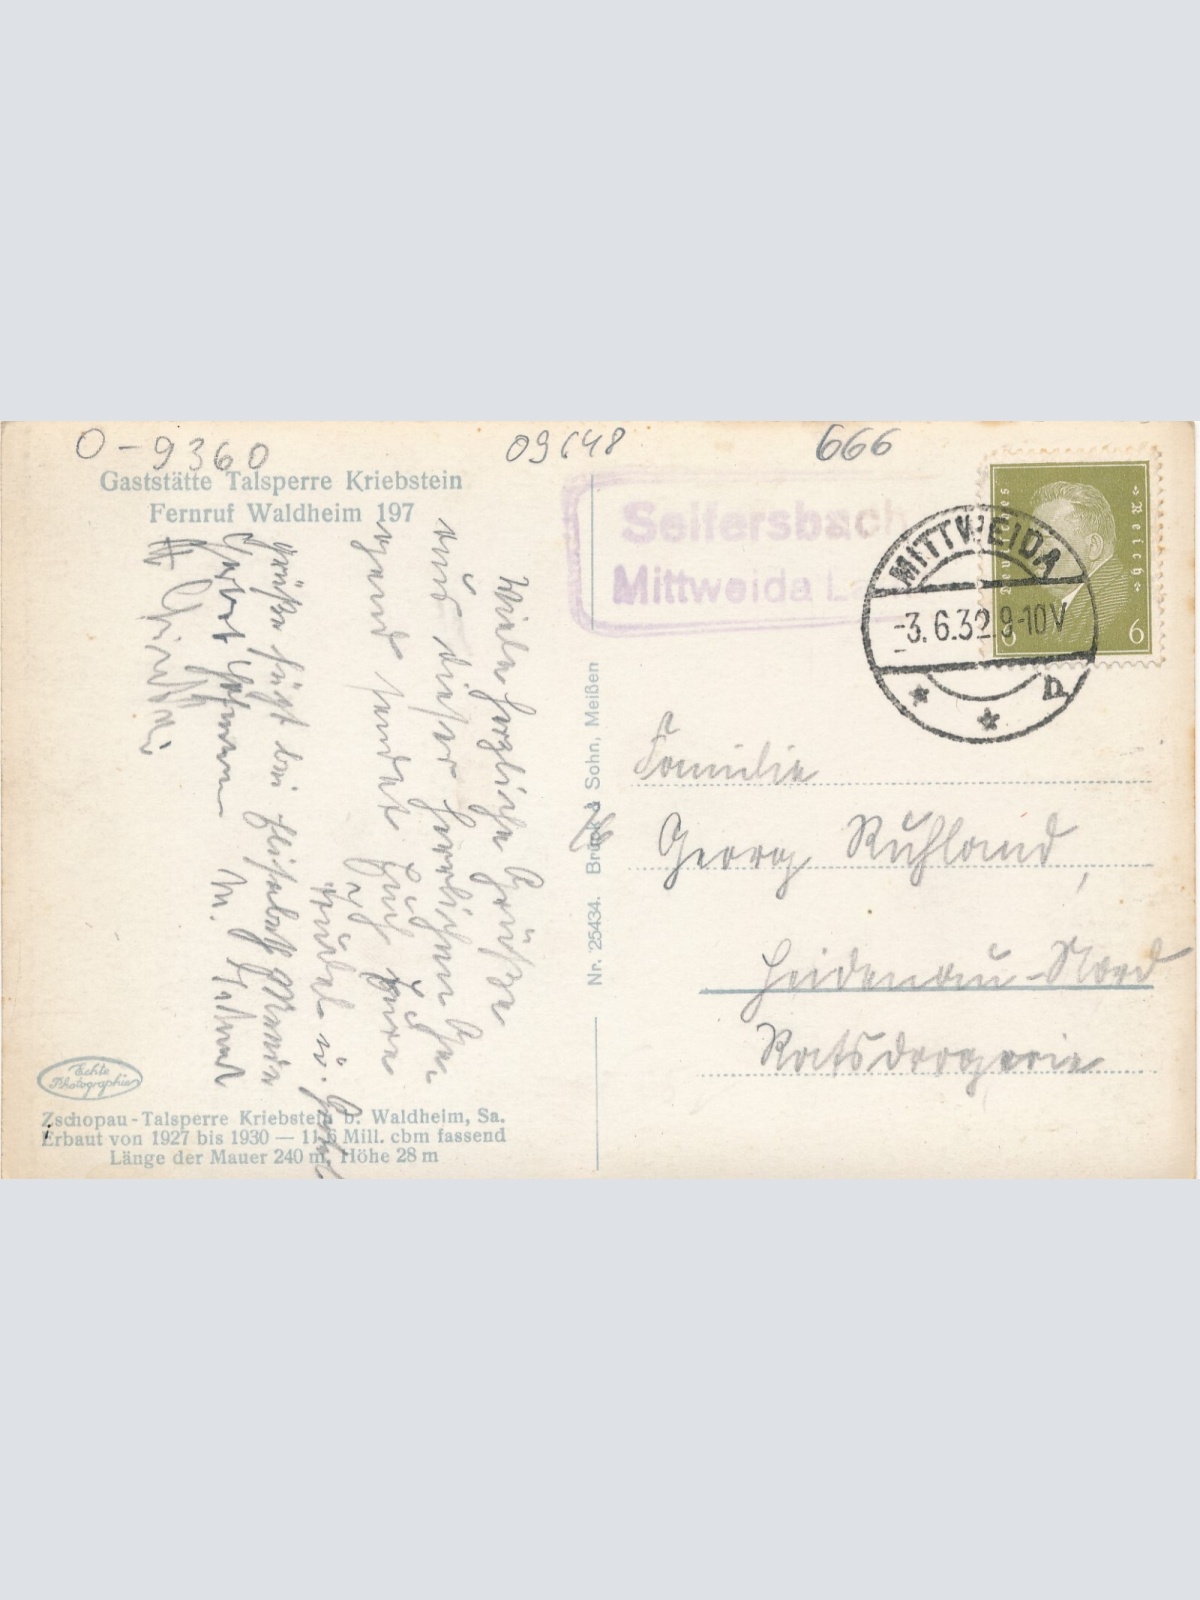 O-9360
09648
666
Gaststätte Talsperre Kriebstein
Fernruf Waldheim 197
Viele herzliche Grüße
aus dieser herrlichen Ge-
gend sendet Euch Eure
Grüße fügt bei Elisabeth
Echte
Photographie
Zschopau-Talsperre Kriebstein b. Waldheim, Sa.
Erbaut von 1927 bis 1930 — 11,6 Mill. cbm fassend
Länge der Mauer 240 m, Höhe 28 m
Nr. 25434. Brück & Sohn, Meißen
Seifersbach
Mittweida La
MITTWEIDA
-3.6.32.9-10V
* * b
Deutsches Reich
6 6
Familie
Georg Ruhland,
Heidenau-Nord
Ratsdrogerie